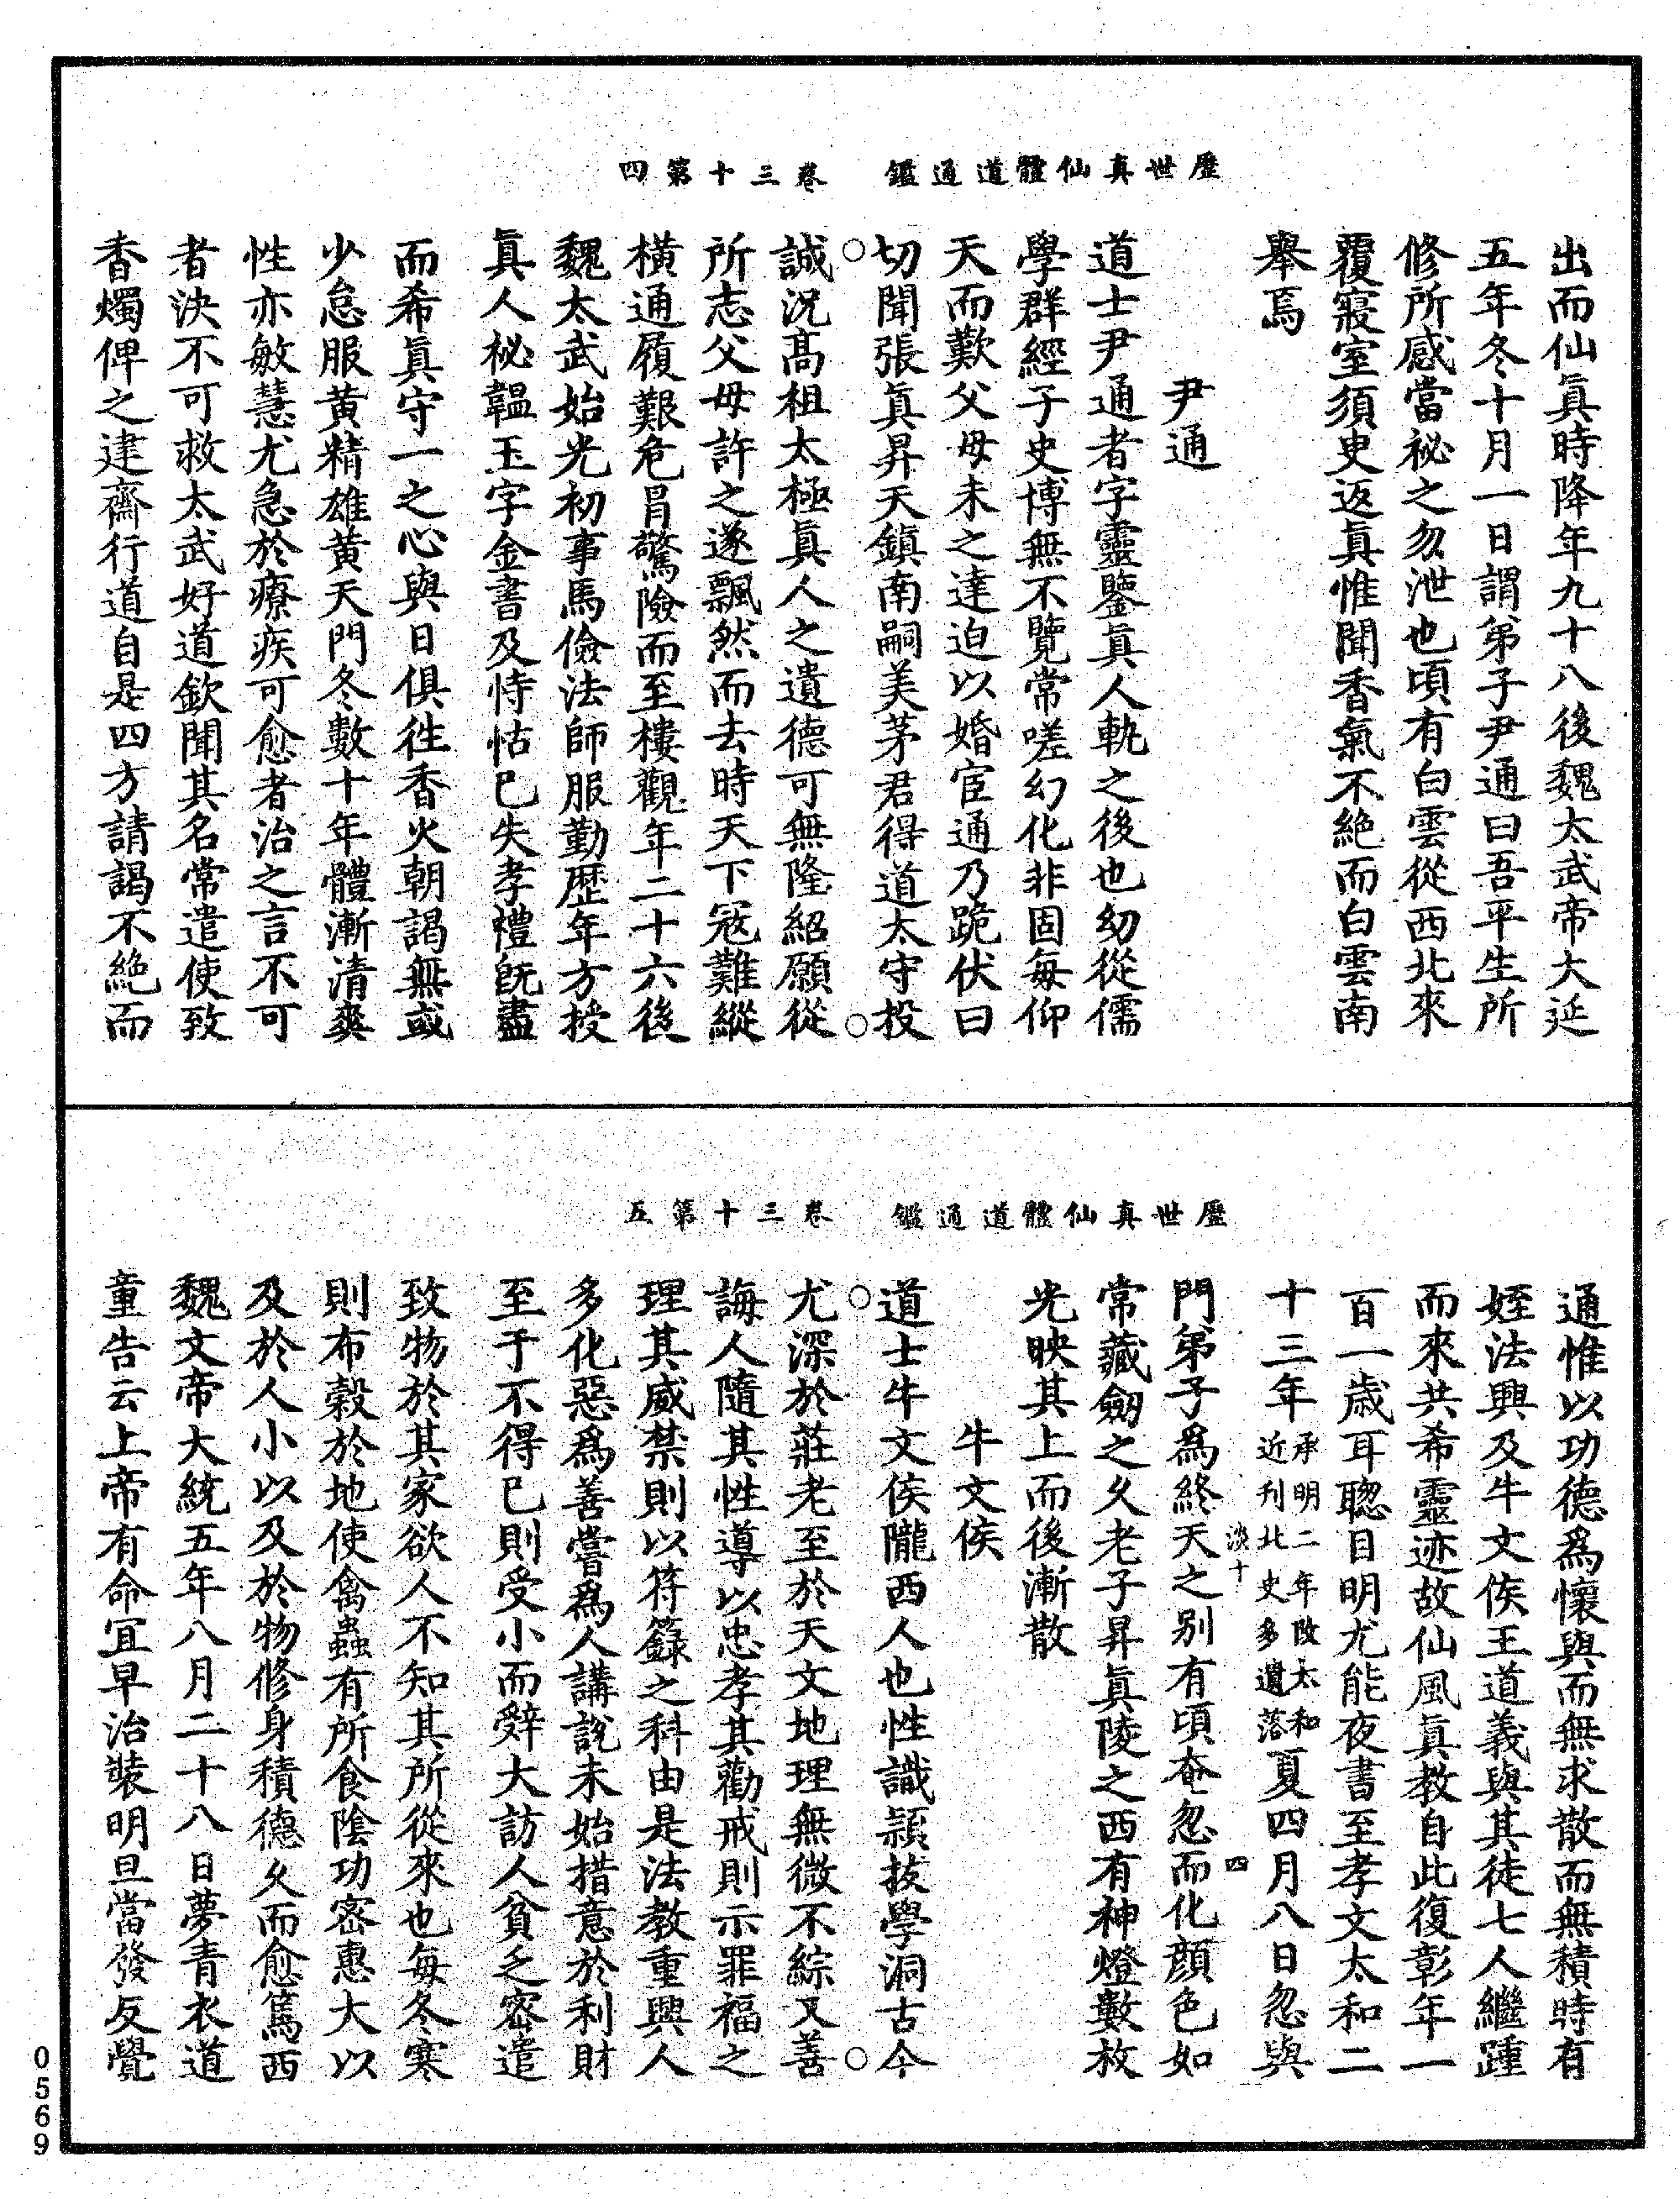 歷世真仙體道通鑑　卷三十第四
出而仙眞時降年九十八後魏太武帝大延
五年冬十月一日謂弟子尹通曰吾平生所
修所感當祕之勿泄也頃有白雲從西北來
覆寢室須㬰返眞惟聞香氣不絶而白雲南
舉焉
尹通
道士尹通者字靈鑒眞人軌之後也幼從儒
學群經子史博無不覽常嗟幻化非固每仰
天而歎父母未之達迫以婚宦通乃跪伏曰
切聞張眞昇天鎮南嗣美茅君得道太守投
誠況髙祖太極眞人之遺德可無隆紹願從
所志父母許之遂飄然而去時天下冦難縱
橫通履艱危冒驚險而至樓觀年二十六後
魏太武始光初事馬儉法師服勤歷年方授
眞人祕韞玉字金書及恃怙已失孝禮旣盡
而希眞守一之心與日俱往香火朝謁無或
少怠服黄精雄黄天門冬數十年體漸清爽
性亦敏慧尤急於療疾可愈者治之言不可
者決不可救太武好道欽聞其名常遣使致
香燭俾之建齋行道自是四方請謁不絶而
歷世真仙體道通鑑　卷三十第五
通惟以功德爲懷與而無求散而無積時有
姪法興及牛文侯王道義與其徒七人繼踵
而來共希靈迹故仙風眞教自此復彰年一
百一歳耳聦目明尤能夜書至孝文太和二
十三年承明二年改太和近刋北史多遺落夏四月八日忽與
淡十　四
門弟子爲終天之别有頃奄忽而化顔色如
常藏劒之乆老子昇眞陵之西有神燈數枚
光映其上而後漸散
牛文侯
道士牛文侯隴西人也性識頴拔學洞古今
尤深於莊老至於天文地理無微不綜又善
誨人隨其性導以忠孝其勸戒則示罪福之
理其威禁則以符籙之科由是法教重興人
多化惡爲善嘗爲人講說未始措意於利財
至于不得已則受小而辤大訪人貧乏密遣
致物於其家欲人不知其所從來也每冬寒
則布穀於地使禽蟲有所食陰功密惠大以
及於人小以及於物修身積德乆而愈篤西
魏文帝大統五年八月二十八日夢青衣道
童告云上帝有命宜早治裝明旦當發及覺
0569